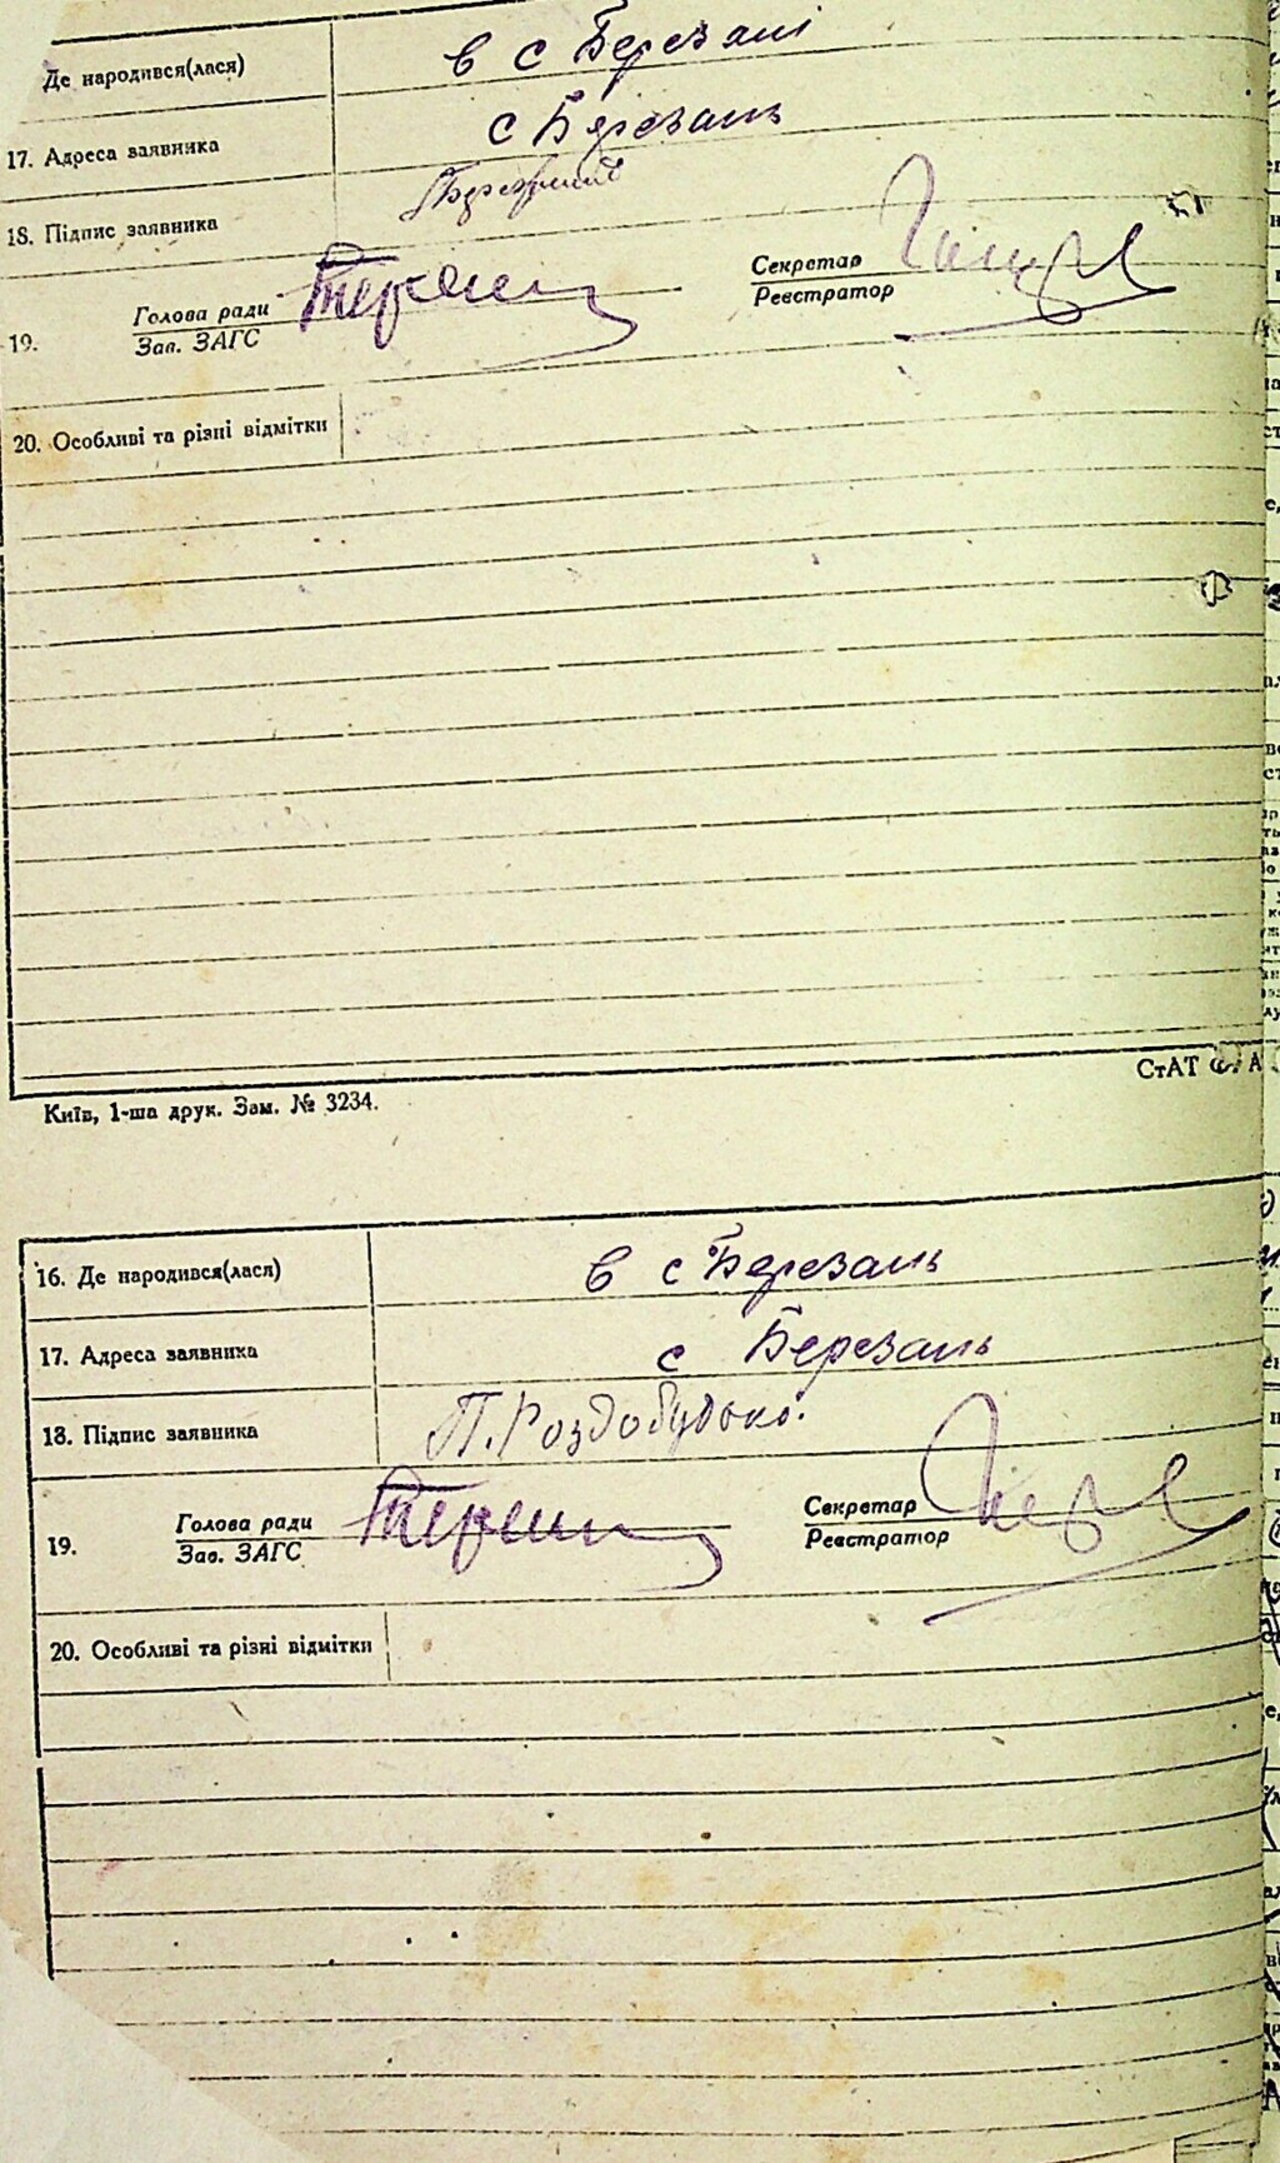 Де народився(лася) в с Березані
17. Адреса заявника с Березань
18. Підпис заявника
Голова ради Секретар
19. Зав. ЗАГС Реєстратор
20. Особливі та різні відмітки
СтАТ
Київ, 1-ша друк. Зам. № 3234.
16. Де народився(лася) в с Березань
17. Адреса заявника с Березань
18. Підпис заявника П. Роздобудько.
Голова ради Секретар
19. Зав. ЗАГС Реєстратор
20. Особливі та різні відмітки